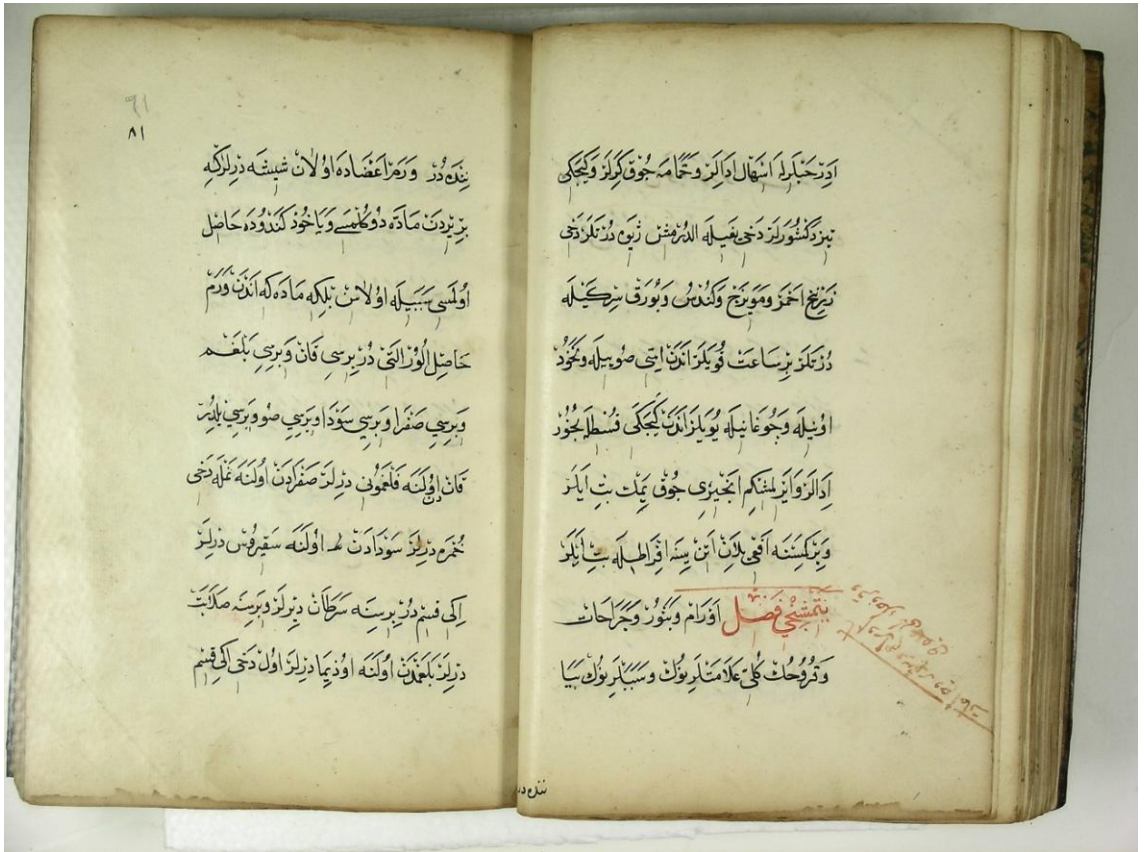 ادر حبلرله اسهال ادالر و حمامه چوق كررلر و كيجكى
تيز دكشورلر دخى يغيله الدرمش زيوه درتلر دخى
زرنيخ احمر و مويزج و كندس و بورق سركيله
درتلر بر ساعت قويلر اندن اسى صوييله و نخود
اونيله و چوغانيله يويلر اندن كيجكى قسطله بخور
ادالر و ايرلمشكم انجيرى چوق يمك بت ايلر
و بر كسنه افعى يلان اتن يسه افراطله بت ايلر
يتمشنجى فصل اورام و بثور و جراحات
و قروحك كلى علامتلرنوك و سببلرنوك بيا
ننده در
٨١
ننده در ورم اعضاده اولان شيشه درلر كه
بر يردن ماده دوكلمسى و يا خوذ كندوده حاصل
اولمسى سببيله اولاسن بلكه ماده كه اندن ورم
حاصل الور التى در برسى قان و برسى بلغم
و برسى صفرا و برسى سودا و برسى صو و برسى يلدر
قان اولنه فلغمونى درلر صفرادن اولنه نمله دخى
خمره درلر سودادن اولنه سقيروس درلر
اكى قسم در برسنه سرطان ديرلر و برسنه صلابت
درلر بلغمدن اولنه اوذيما درلر اول دخى اكى قسم